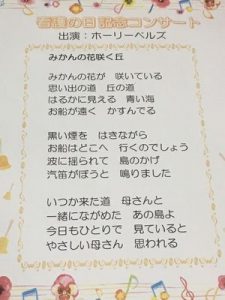 看護の日 記念コンサート
出演：ホーリーベルズ
みかんの花咲く丘
みかんの花が　咲いている
思い出の道　丘の道
はるかに見える　青い海
お船が遠く　かすんでる
黒い煙を　はきながら
お船はどこへ　行くのでしょう
波に揺られて　島のかげ
汽笛がぼうと　鳴りました
いつか来た道　母さんと
一緒にながめた　あの島よ
今日もひとりで　見ていると
やさしい母さん　思われる